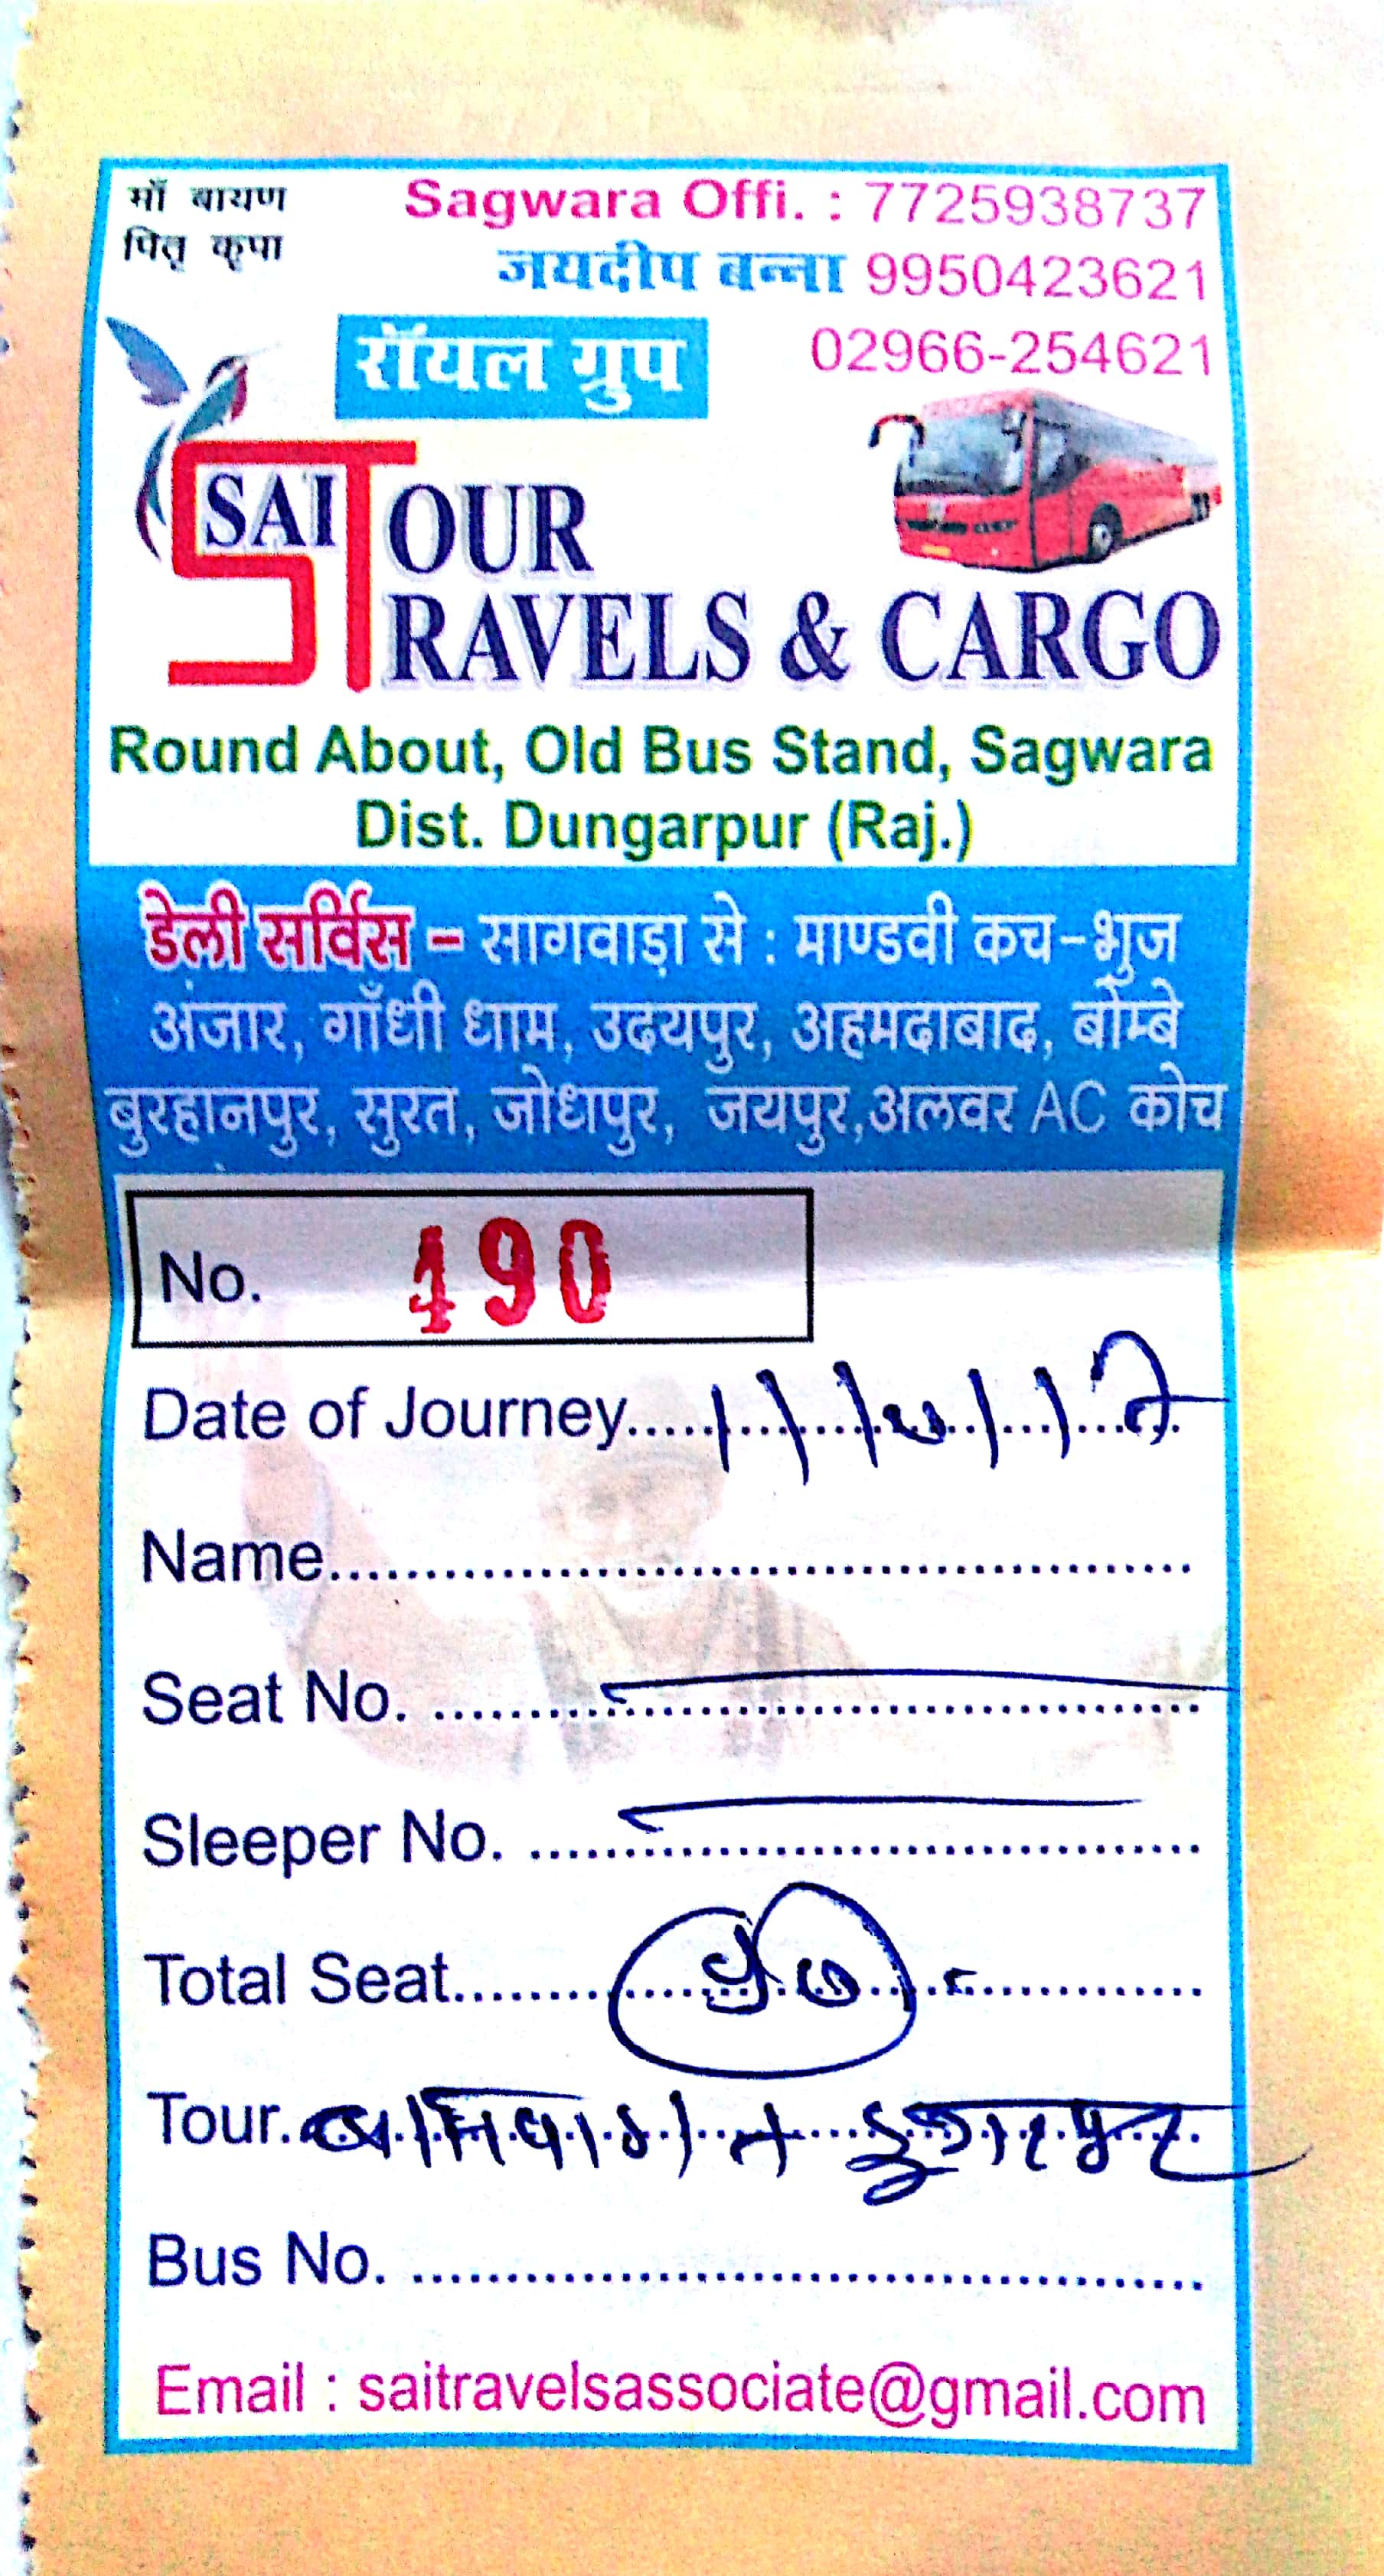 माँ बायण
पितृ कृपा
Sagwara Offi. : 7725938737
जयदीप बन्ना 9950423621
02966-254621
रॉयल ग्रुप
SAI TOUR
TRAVELS & CARGO
Round About, Old Bus Stand, Sagwara
Dist. Dungarpur (Raj.)
डेली सर्विस - सागवाड़ा से : माण्डवी कच-भुज
अंजार, गाँधी धाम, उदयपुर, अहमदाबाद, बोम्बे
बुरहानपुर, सुरत, जोधपुर, जयपुर,अलवर AC कोच
No. 190
Date of Journey
Name
Seat No.
Sleeper No.
Total Seat
Tour
Bus No.
Email : saitravelsassociate@gmail.com